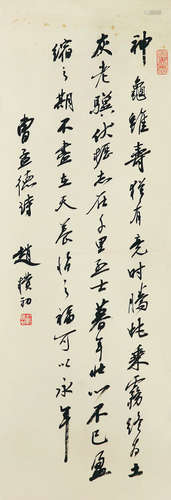 神龜雖壽猶有竟時騰蛇乘霧終為土
灰老驥伏櫪志在千里烈士暮年壯心不已盈
縮之期不盡在天養怡之福可以永年
曹孟德詩
趙樸初